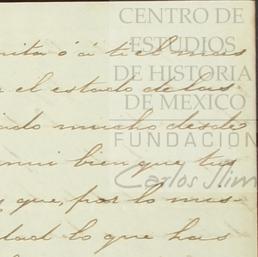 CENTRO DE
ESTUDIOS
DE HISTORIA
DE MEXICO
FUNDACIÓN
Carlos Slim
nita ó á tí el mas
el estado de las
ado mucho desde
mui bien que tus
que, por lo mis-
dad lo que has